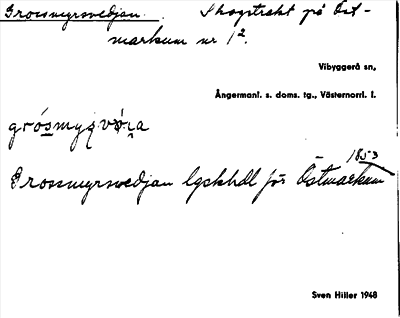 Grossmyrsvedjan. Skogstrakt på Öst-
markum nr 1².
Vibyggerå sn,
Ångermanl. s. doms. tg., Västernorrl. l.
1853
Grossmyrsvedjan lgskhdl för Östmarkum
Sven Hiller 1948